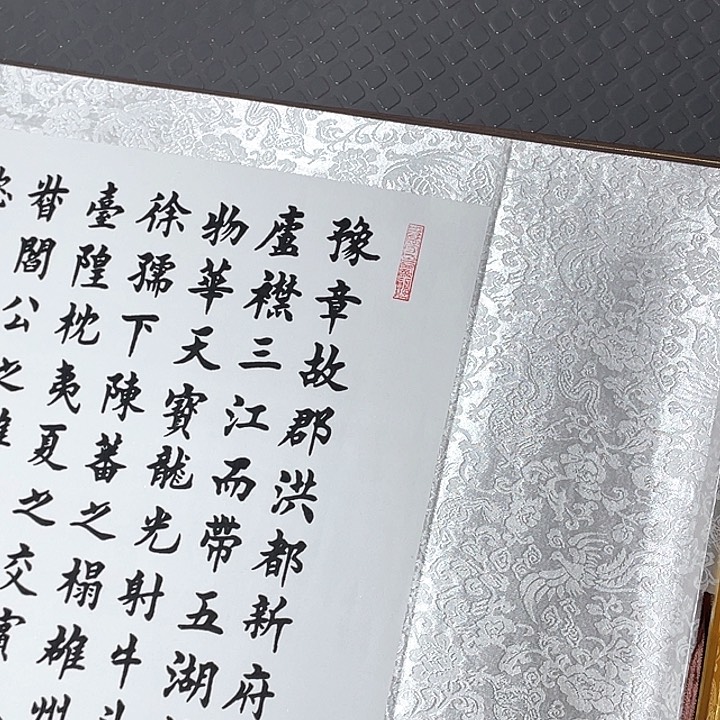 豫章故郡洪都新府
盧襟三江而帶五湖
物華天寶龍光射牛斗
徐孺下陳蕃之榻雄州
臺隍枕夷夏之交賓
督閻公之雅